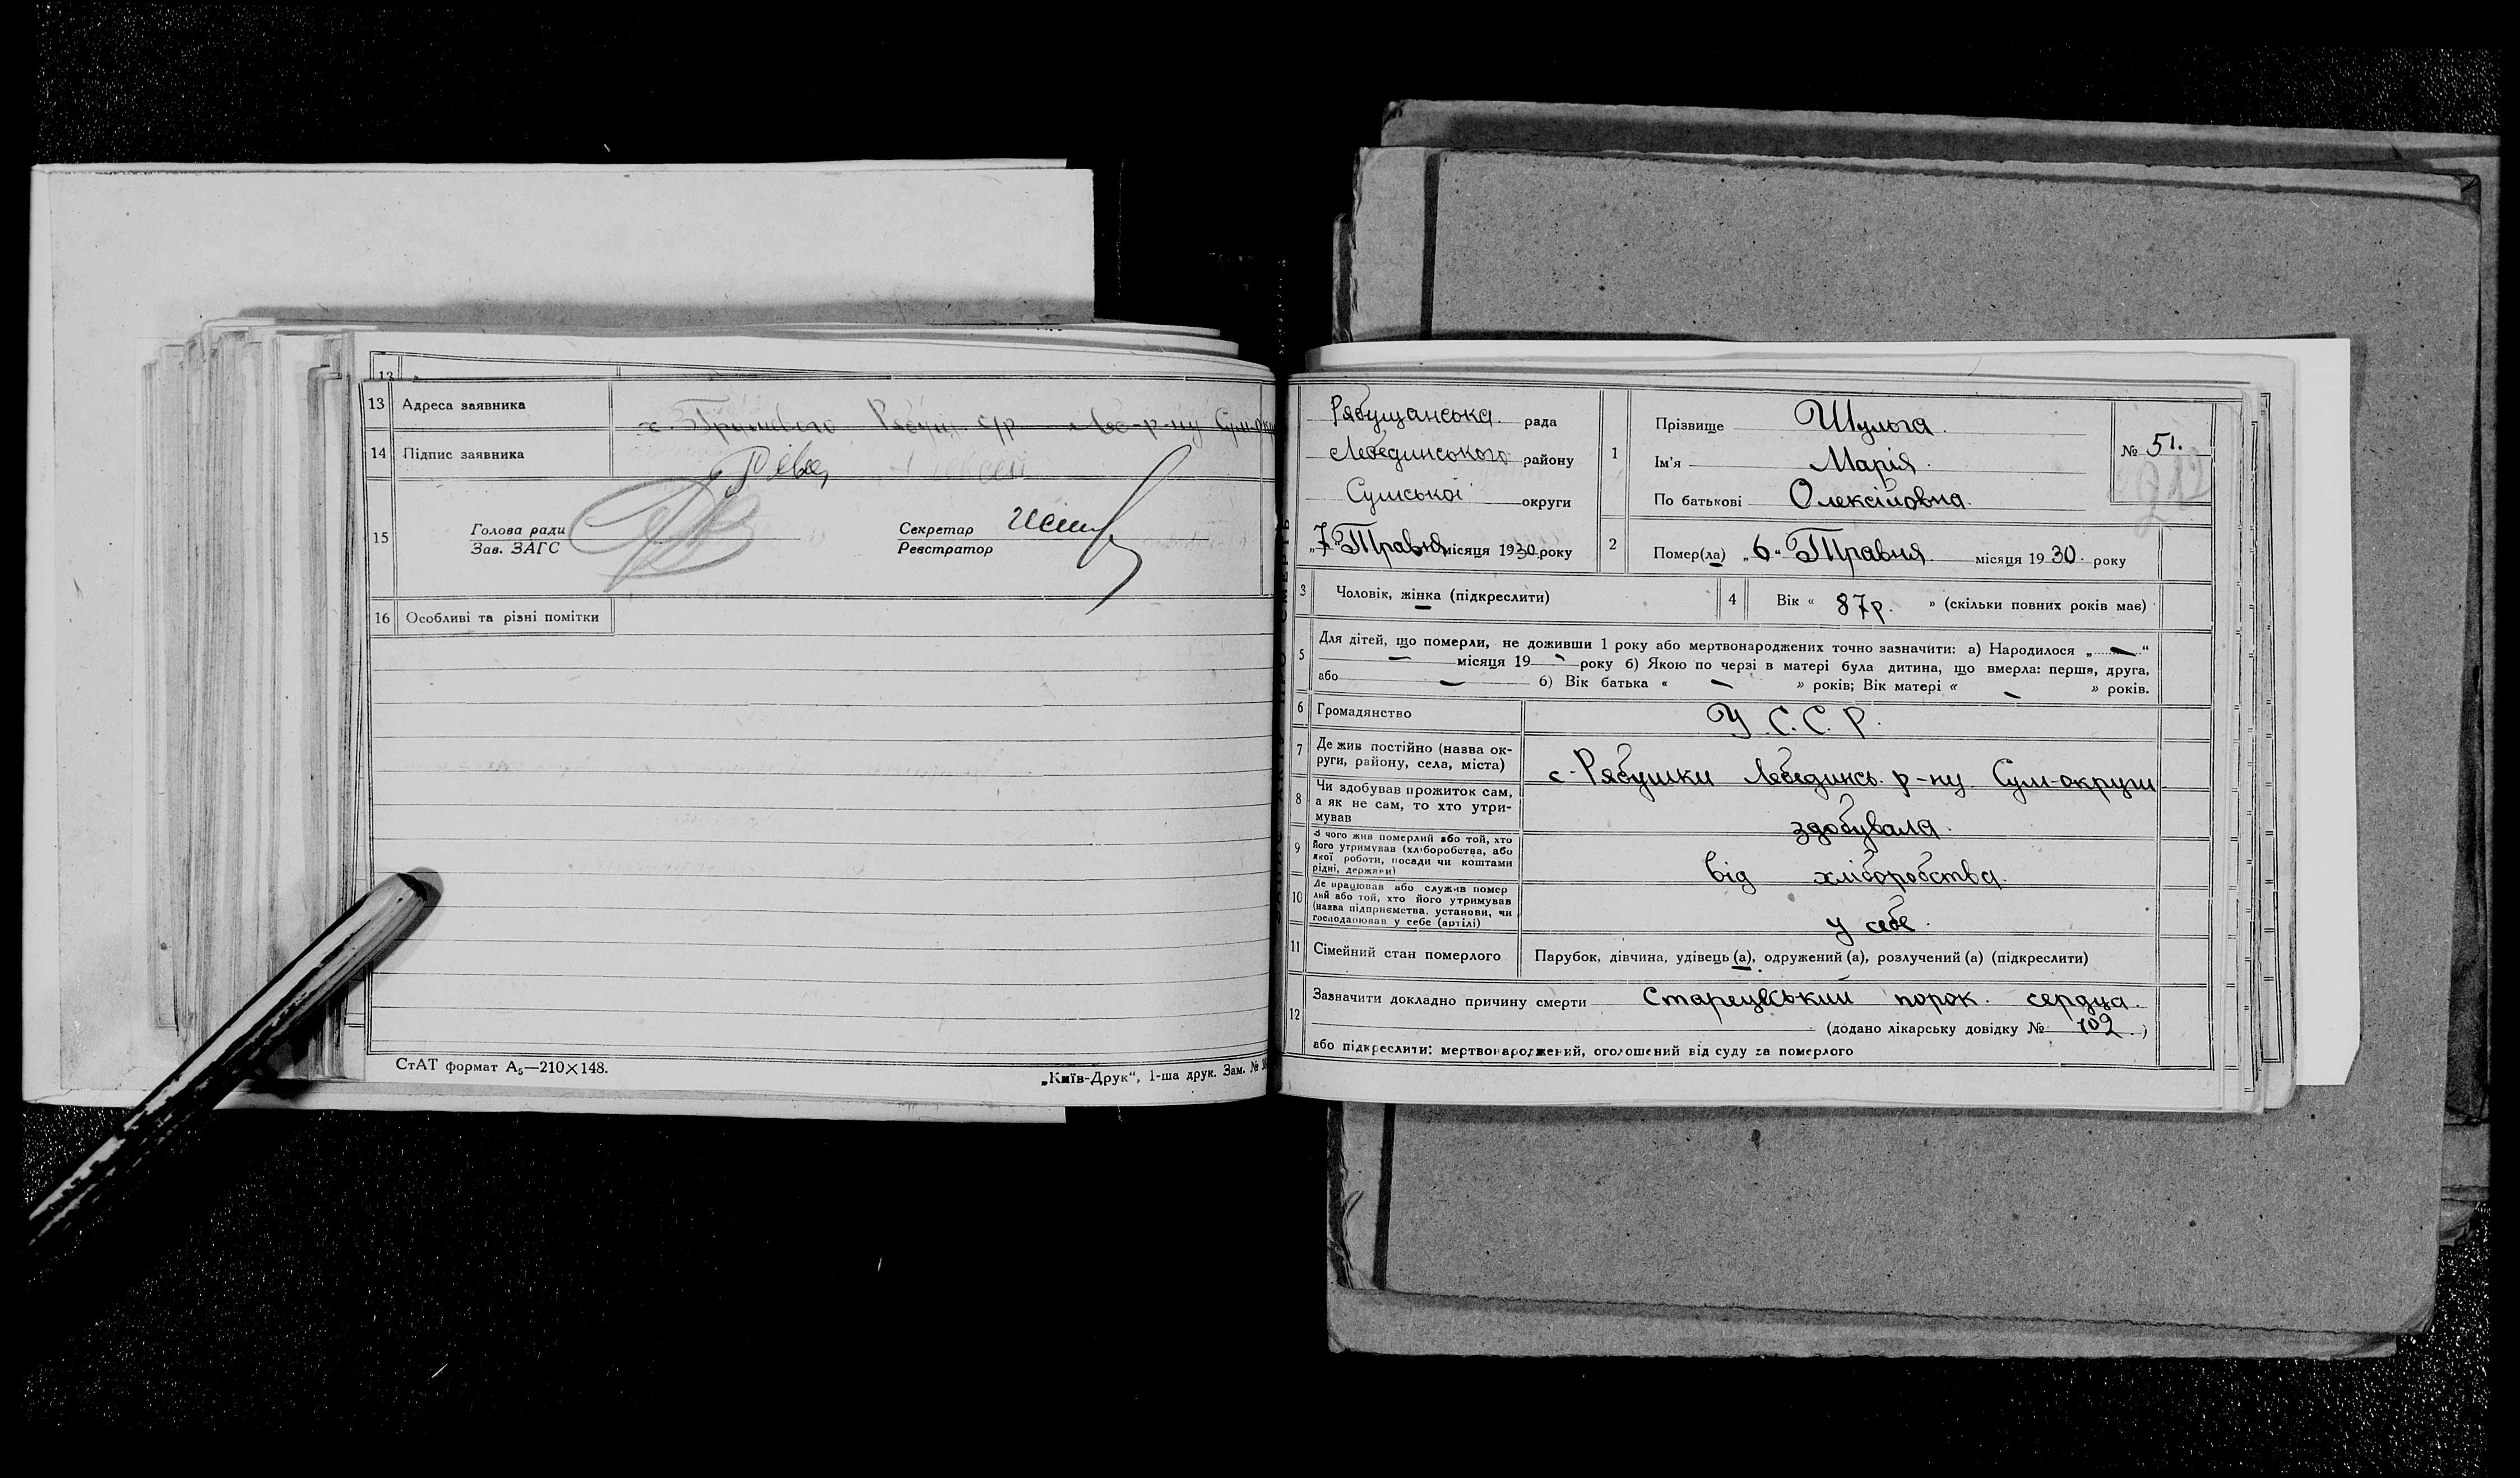 13 Адреса заявника
с/р р-ну
14 Підпис заявника
15 Голова ради Секретар
Зав. ЗАГС Реєстратор
16 Особливі та різні помітки
СтАТ формат А5—210×148.
„Київ-Друк“, 1-ша друк. Зам. №
Рябущанська рада
Лебединського району
Сумської округи
„7“ Травня місяця 1930 року
1 Прізвище Шульга
Ім'я Марія
По батькові Олексіїовна
№ 51.
2 Помер(ла) „6“ Травня місяця 1930 року
3 Чоловік, жінка (підкреслити)
4 Вік « 87р. » (скільки повних років має)
5 Для дітей, що померли, не доживши 1 року або мертвонароджених точно зазначити: а) Народилося „ — “
— місяця 19 — року б) Якою по черзі в матері була дитина, що вмерла: перша, друга,
або — б) Вік батька « — » років; Вік матері « — » років.
6 Громадянство У.С.С.Р.
7 Де жив постійно (назва ок-
руги, району, села, міста) с. Рябушки Лебединсь. р-ну Сум-округи
8 Чи здобував прожиток сам,
а як не сам, то хто утри-
мував здобувала
9 З чого жив померлий або той, хто
його утримував (хліборобства, або
якої роботи, посади чи коштами
рідні, держави) від хліборобства
10 Де працював або служив помер
лий або той, хто його утримував
(назва підприємства, установи, чи
господарював у себе (артілі) у себе
11 Сімейний стан померлого Парубок, дівчина, удівець (а), одружений (а), розлучений (а) (підкреслити)
12 Зазначити докладно причину смерти Старецвський порок сердца.
(додано лікарську довідку № 102.)
або підкреслити: мертвонароджений, оголошений від суду за померлого